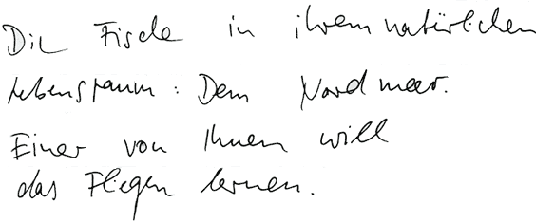 Die Fische in ihrem natürlichen
Lebensraum: Dem Nordmeer.
Einer von Ihnen will
das Fliegen lernen.